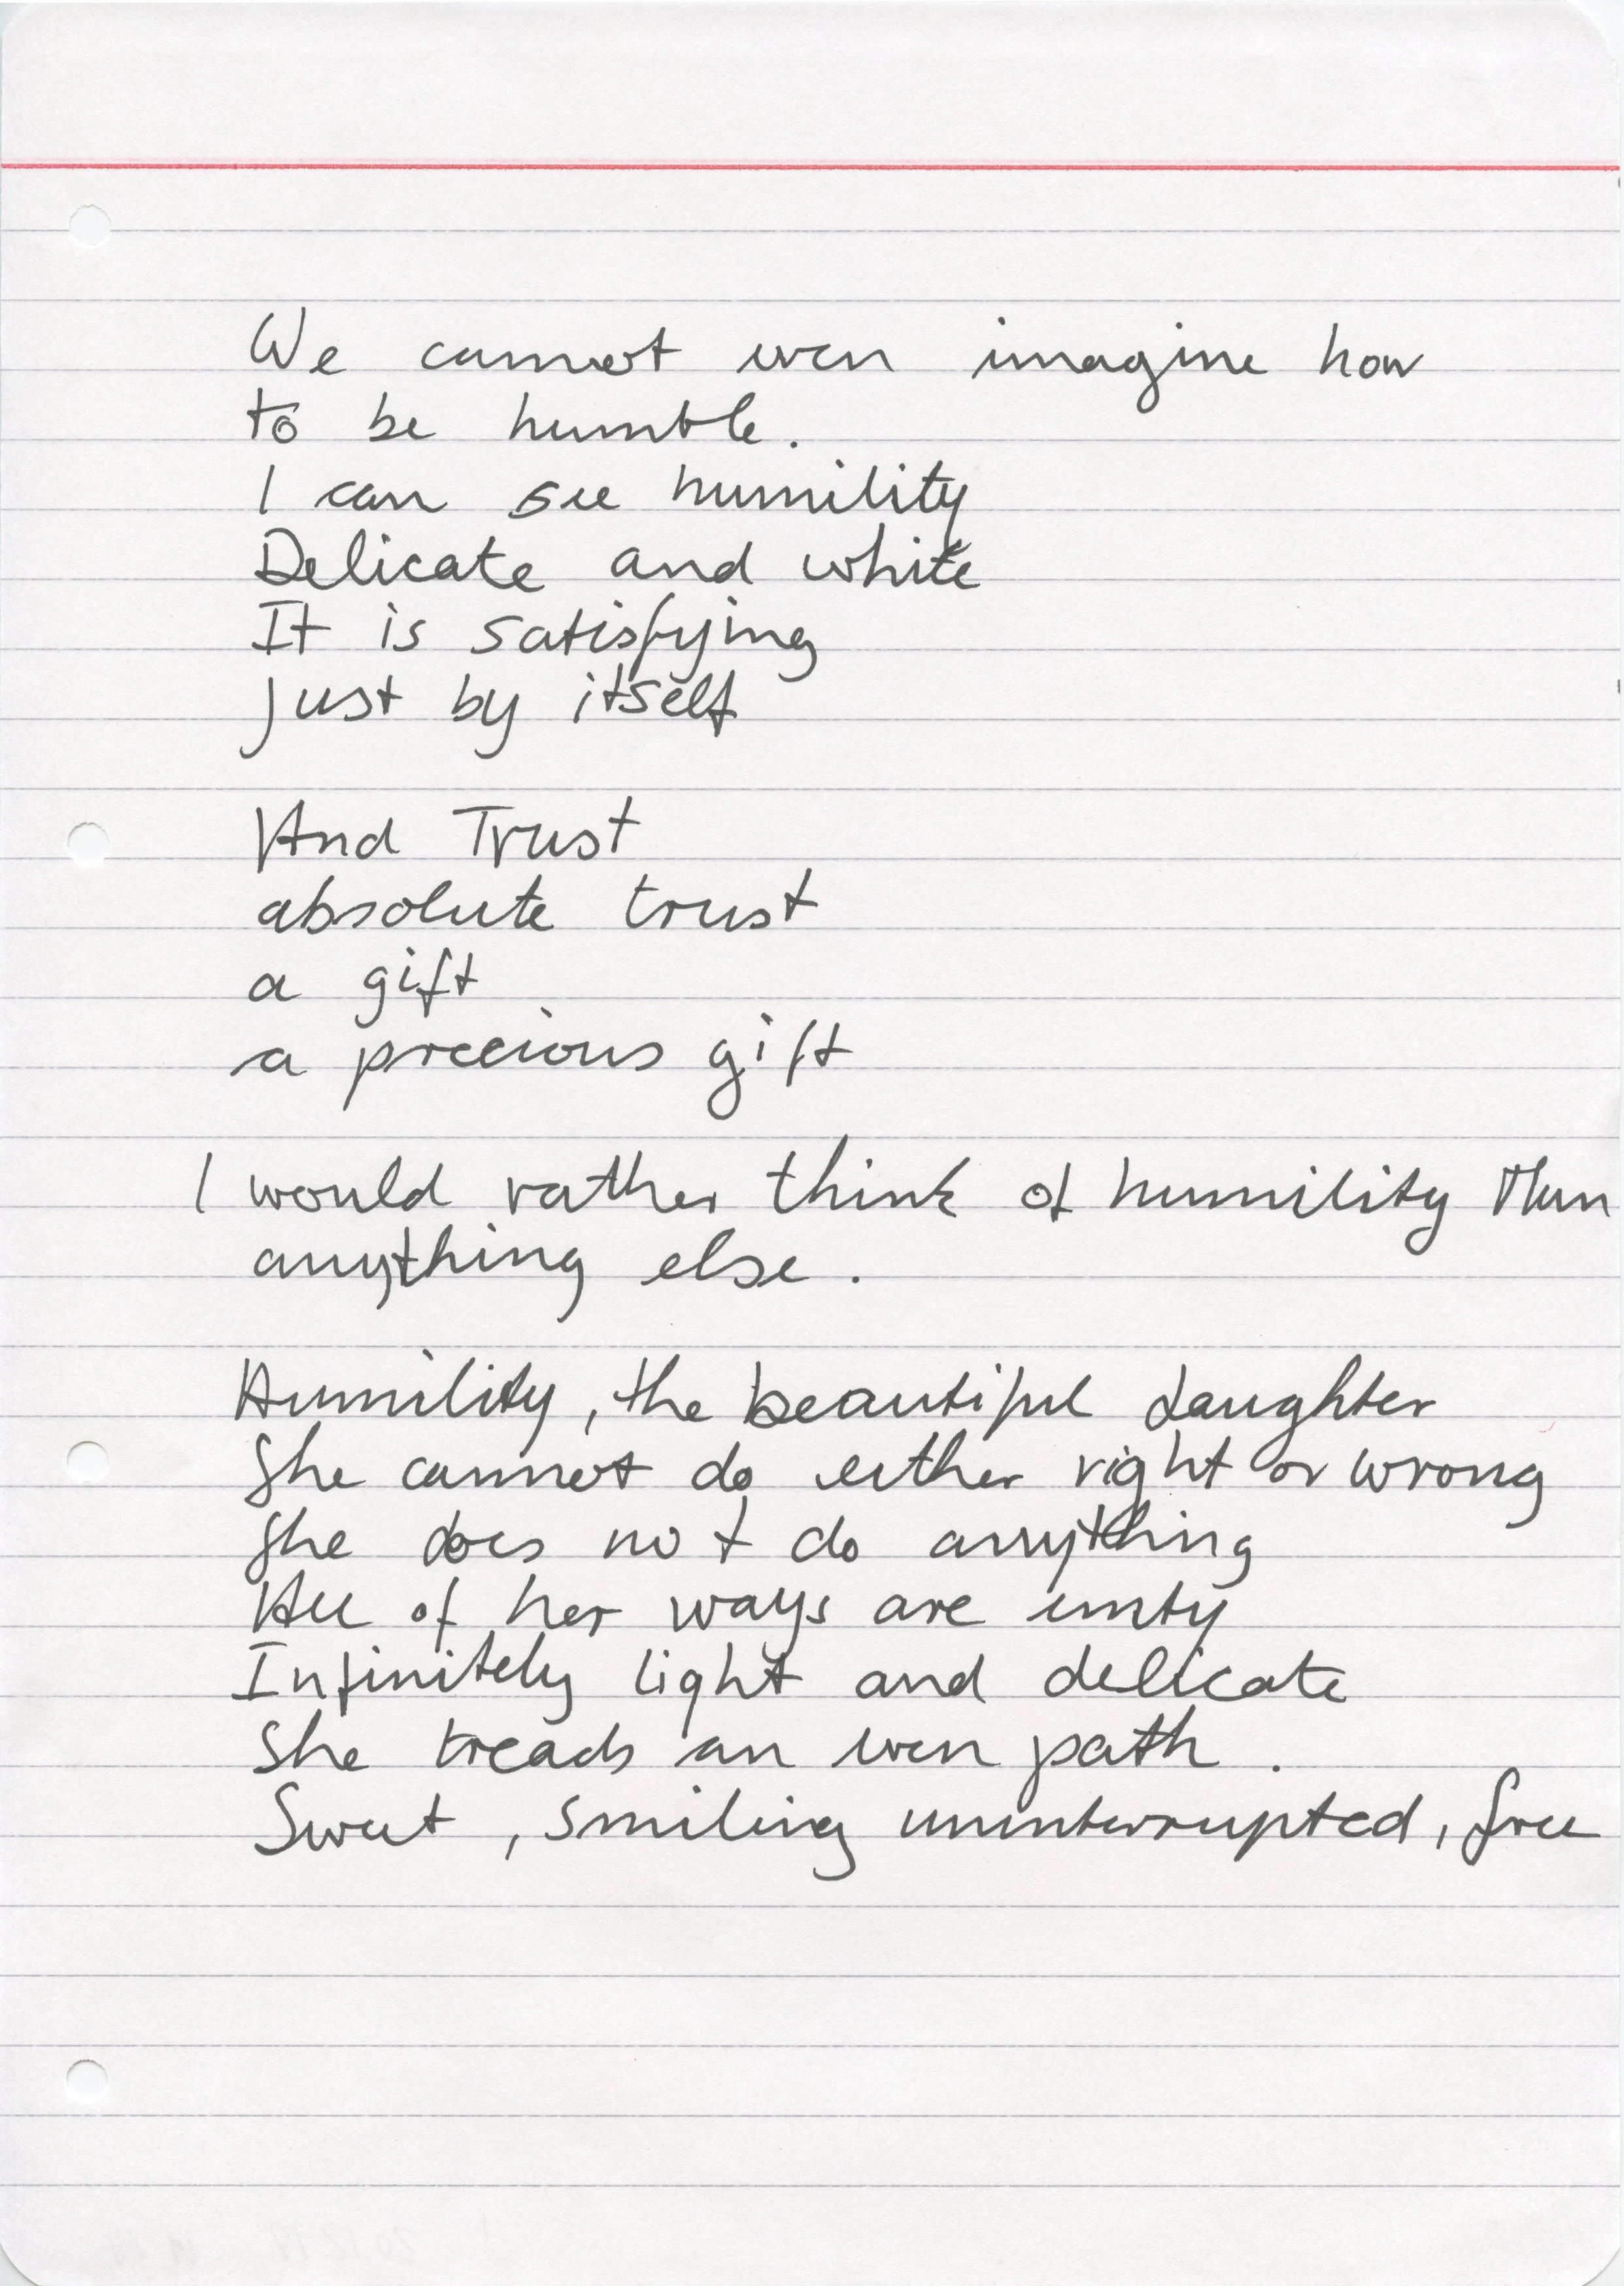 We cannot even imagine how
to be humble.
I can see humility
Delicate and white
It is satisfying
just by itself
And Trust
absolute trust
a gift
a precious gift
I would rather think of humility than
anything else.
Humility, the beautiful daughter
She cannot do either right or wrong
She does not do anything
All of her ways are emty
Infinitely light and delicate
She treads an even path.
Sweet, smiling uninterrupted, free